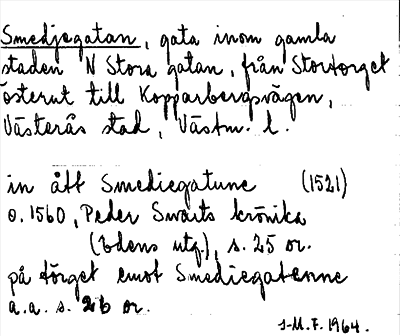 Smedjegatan, gata inom gamla
staden N Stora gatan, från Stortorget
österut till Kopparbergsvägen,
Västerås stad, Västm. l.
in ått Smediegatune (1521)
o. 1560, Peder Swarts krönika
(Edens utg.), s. 25 or.
på törget emot Smediegatenne
a.a. s. 26 or.
J-M.F. 1964.